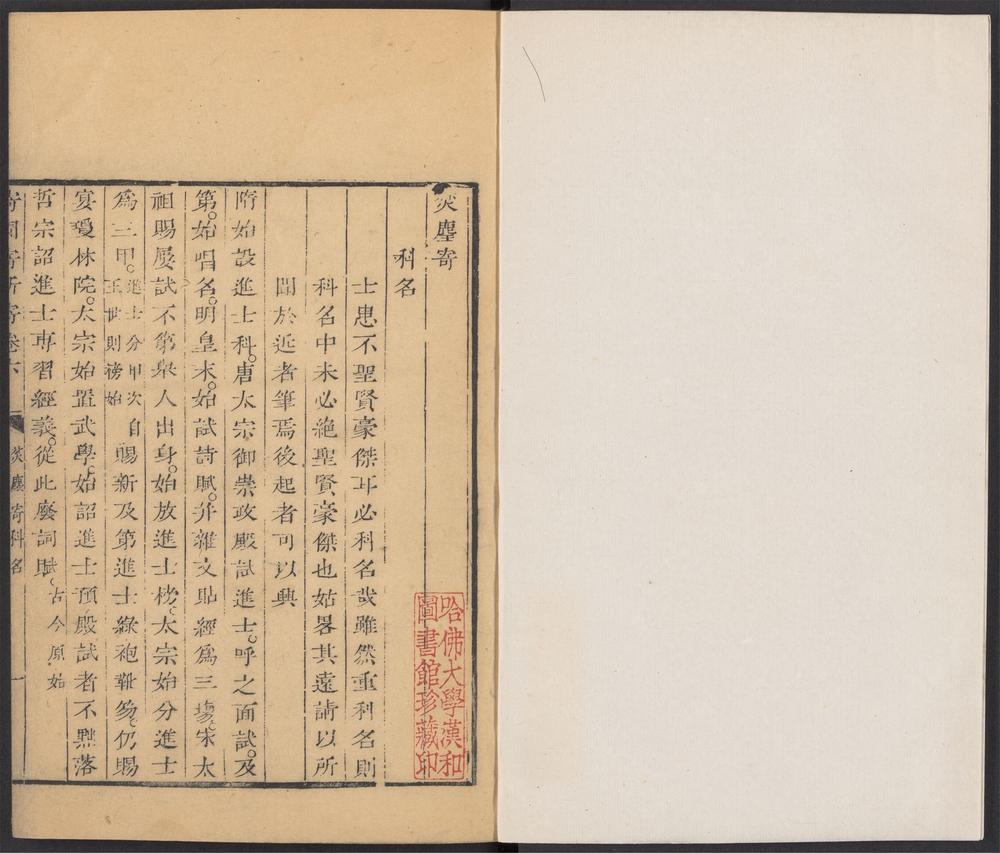 焚麈寄
科名
士患不聖賢豪傑耳必科名哉雖然重科名則
科名中未必絶聖賢豪傑也姑畧其遠請以所
聞於近者筆焉後起者可以興
隋始設進士科。唐太宗御崇政殿試進士。呼之面試。及
第。始唱名。明皇末。始試詩賦。并雜文貼經爲三塲。宋太
祖賜屢試不第舉人出身。始放進士榜。太宗始分進士
爲三甲。進士分甲次
自王世則榜始
賜新及第進士綠袍靴笏。仍賜
宴瓊林院。太宗始置武學。始詔進士預殿試者不黜落
哲宗詔進士專習經義。從此廢詞賦。古今原始
寄園寄所寄卷六 焚麈寄科名 一
哈佛大學漢和
圖書館珍藏印